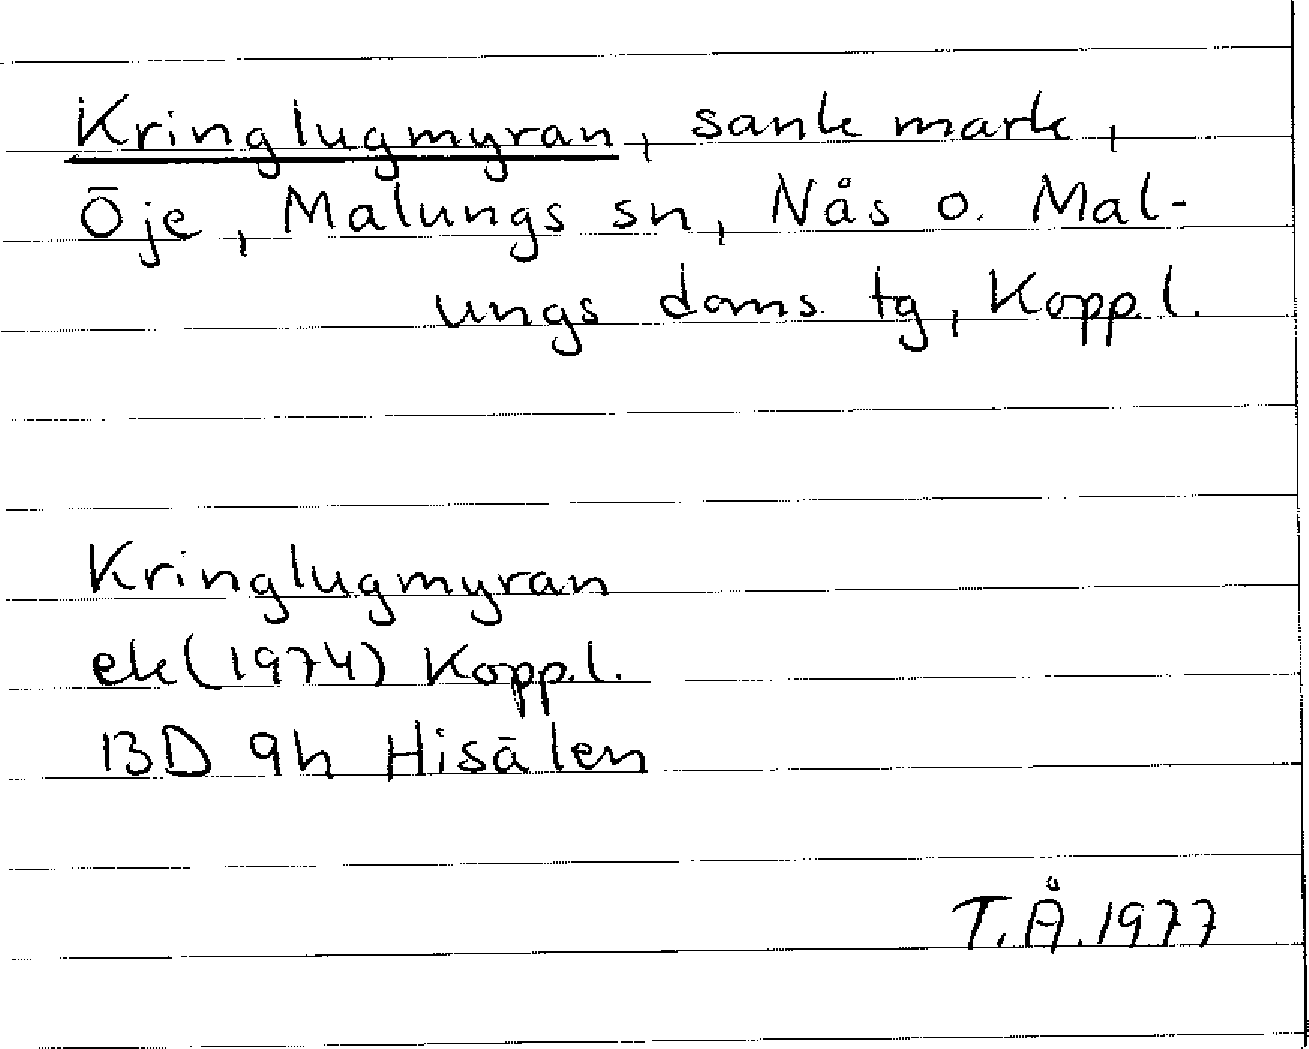 Kringlugmyran, sank mark,
Öje, Malungs sn, Nås o. Mal-
ungs doms tg, Kopp.l.
Kringlugmyran
ek (1974) Kopp.l.
13D 9h Hisälen
T.Å. 1977